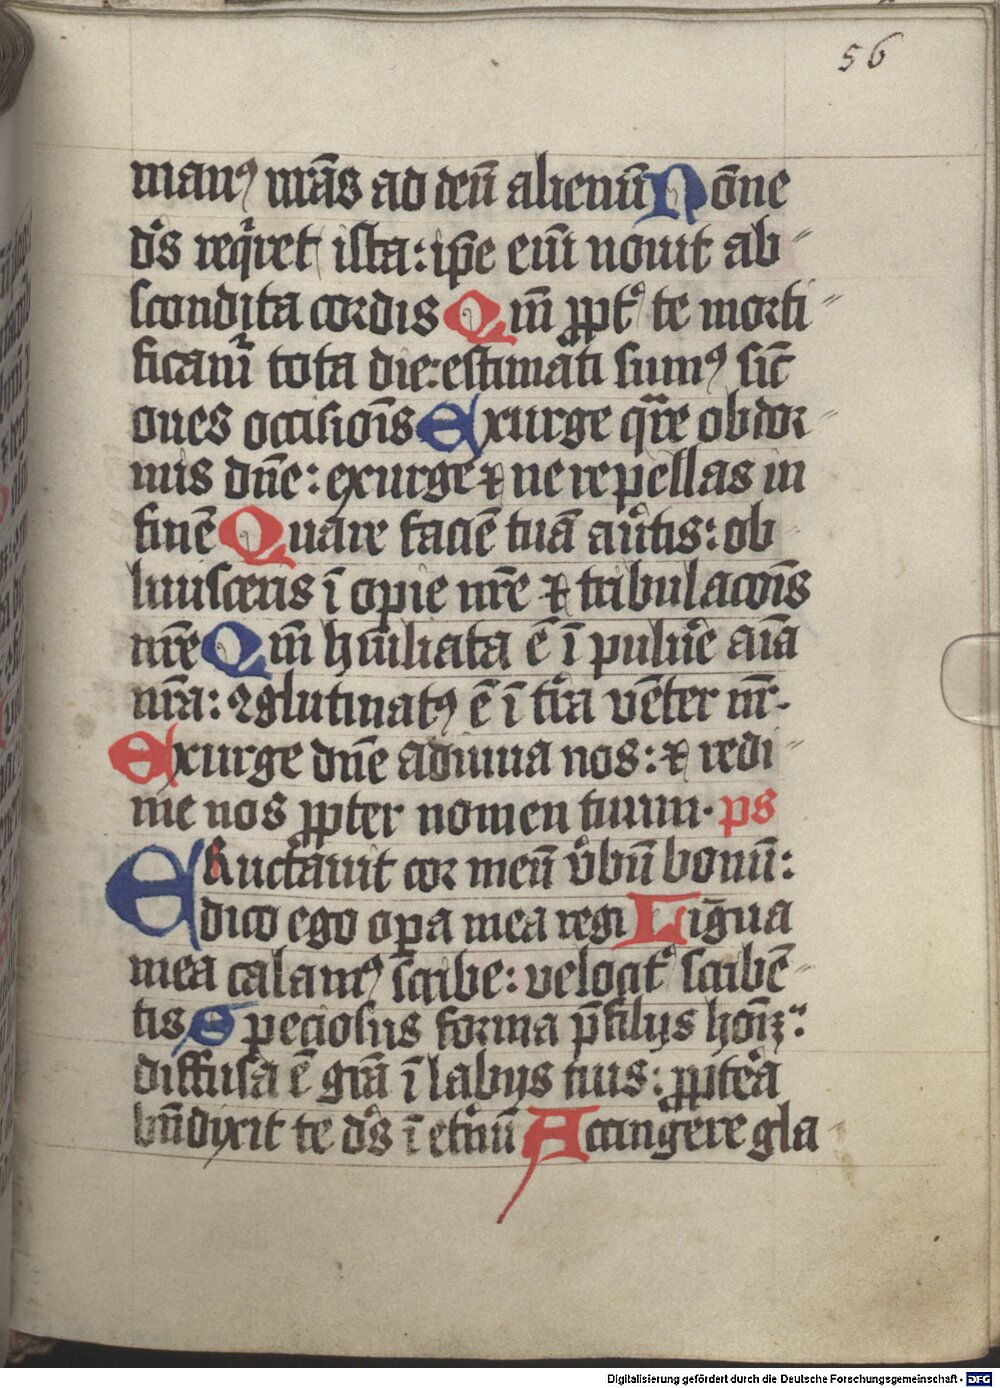 56
manꝰ nr̄as ad deū alienū Nōne
ds̄ reqͥret ista: ip̄e eni̅ nouit ab⸗
scondita cordis Qm̄ ꝓpt͛ te morti⸗
ficamͥ tota die: estimati sumꝰ sic̄
oues occisiōis Exurge qͣre obdor⸗
mis dn̄e: exurge ⁊ ne repellas in
finē Quare faciē tuā aūtis: ob
liuisceris ī opie nr̄e ⁊ tribulacōis
nr̄e Qm̄ hūiliata ē ī puluͤe aīa
nr̄a: ꝯglutinatꝰ ē ī tr̄a vēter nr̄.
Exurge dn̄e adiuua nos: ⁊ redi⸗
me nos ꝓpter nomen tuum. ps
ERuctauit cor meū v̄bū bonū:
dico ego oꝑa mea regi Lin̄gua
mea calamꝰ sc̄ribe: velocit͛ scribē⸗
tis Speciosus forma p̄ filijs hoīꝫ:
diffusa ē gr̄a ī labijs tuis: ꝓpͥtea
bn̄dixit te ds̄ ī et͛nū Accingere gla
Digitalisierung gefördert durch die Deutsche Forschungsgemeinschaft - DFG